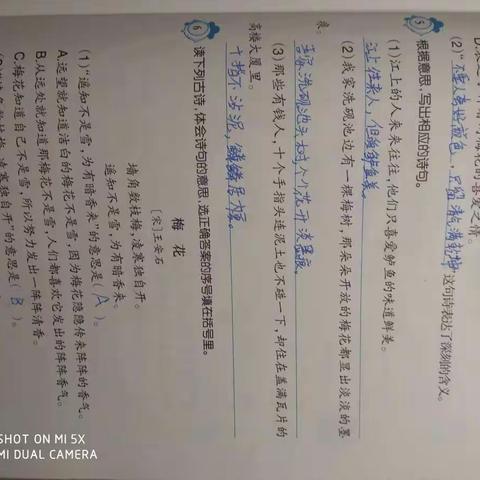 梅花的喜爱之情。
(2)"不要人夸好颜色,只留清气满乾坤"这句诗表达了深刻的含义。
5 根据意思,写出相应的诗句。
(1)江上的人来来往往,他们只喜爱鲈鱼的味道鲜美。
江上往来人,但爱鲈鱼美。
(2)我家洗砚池边有一棵梅树,那朵朵开放的梅花都显出淡淡的墨
痕。
洗砚池头树,个个花开淡墨痕。
(3)那些有钱人,十个手指头连泥土也不碰一下,却住在盖满瓦片的
高楼大厦里。
十指不沾泥,鳞鳞居大厦。
6 读下列古诗,体会诗句的意思,选正确答案的序号填在括号里。
梅花
[宋]王安石
墙角数枝梅,凌寒独自开。
遥知不是雪,为有暗香来。
(1)"遥知不是雪,为有暗香来"的意思是(A)。
A.远望就知道洁白的梅花不是雪,因为梅花隐隐传来阵阵的香气。
B.从远处就知道那梅花不是雪,人们都喜欢它发出的阵阵香气。
C.梅花知道自己不是雪,所以努力发出一阵阵清香。
数枝梅,凌寒独自开"的意思是(B)。
SHOT ON MI 5X
MI DUAL CAMERA